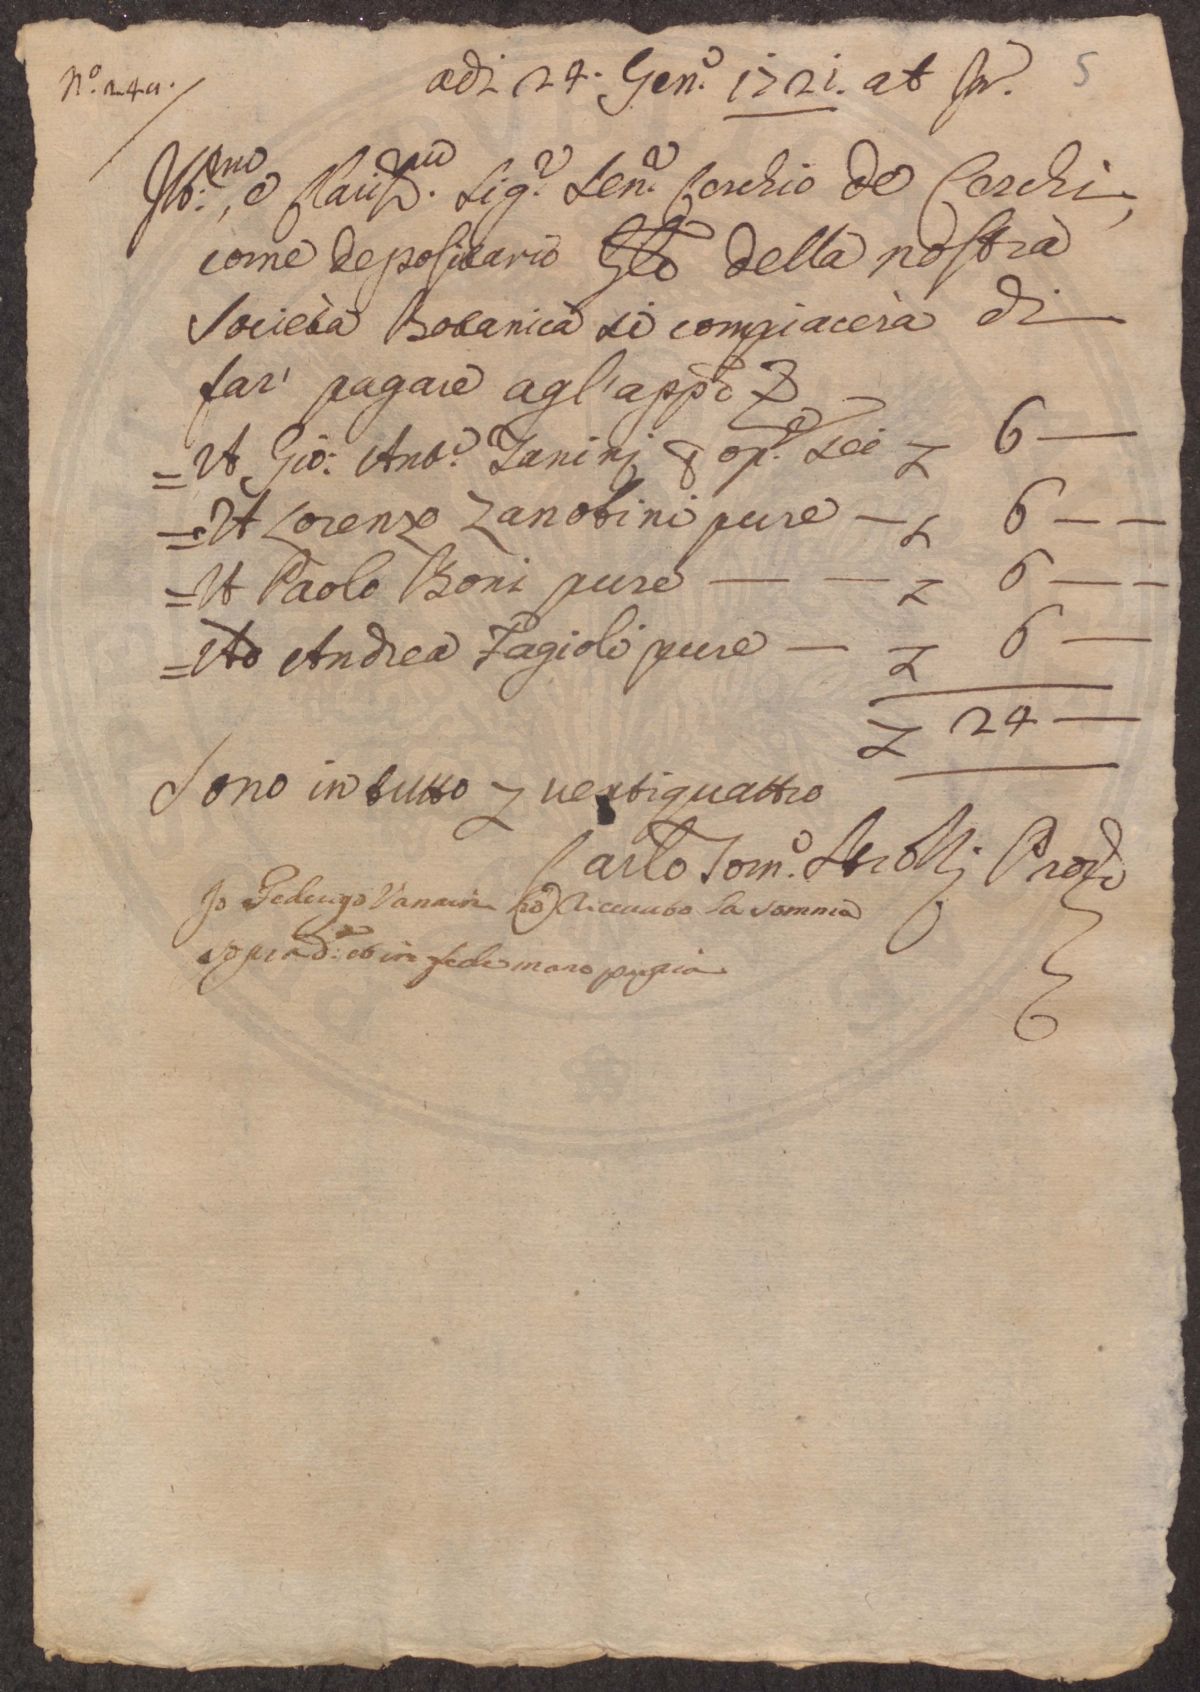 N.o 24a.
adi 24. Gen.o 1721. ab In.
5
Ill:mo, e Clariss.mo Sig.r Sen.r Cerchio de Cerchi,
come depositario della nostra
Società Botanica si compiacerà di
far' pagare agl'app.ti
= A Gio: Ant.o Zanini p op.e sei £ 6 —
= A Lorenzo Zanobini pure — £ 6 — —
= A Paolo Boni pure — — £ 6 — —
= A Andrea Fagioli pure — £ 6 —
£ 24 —
Sono in tutto £ ventiquattro
Carlo Tom.o Strozzi Prov.e
Io Vannini ho riceuuto la somma
soprad.a et in fede mano propia